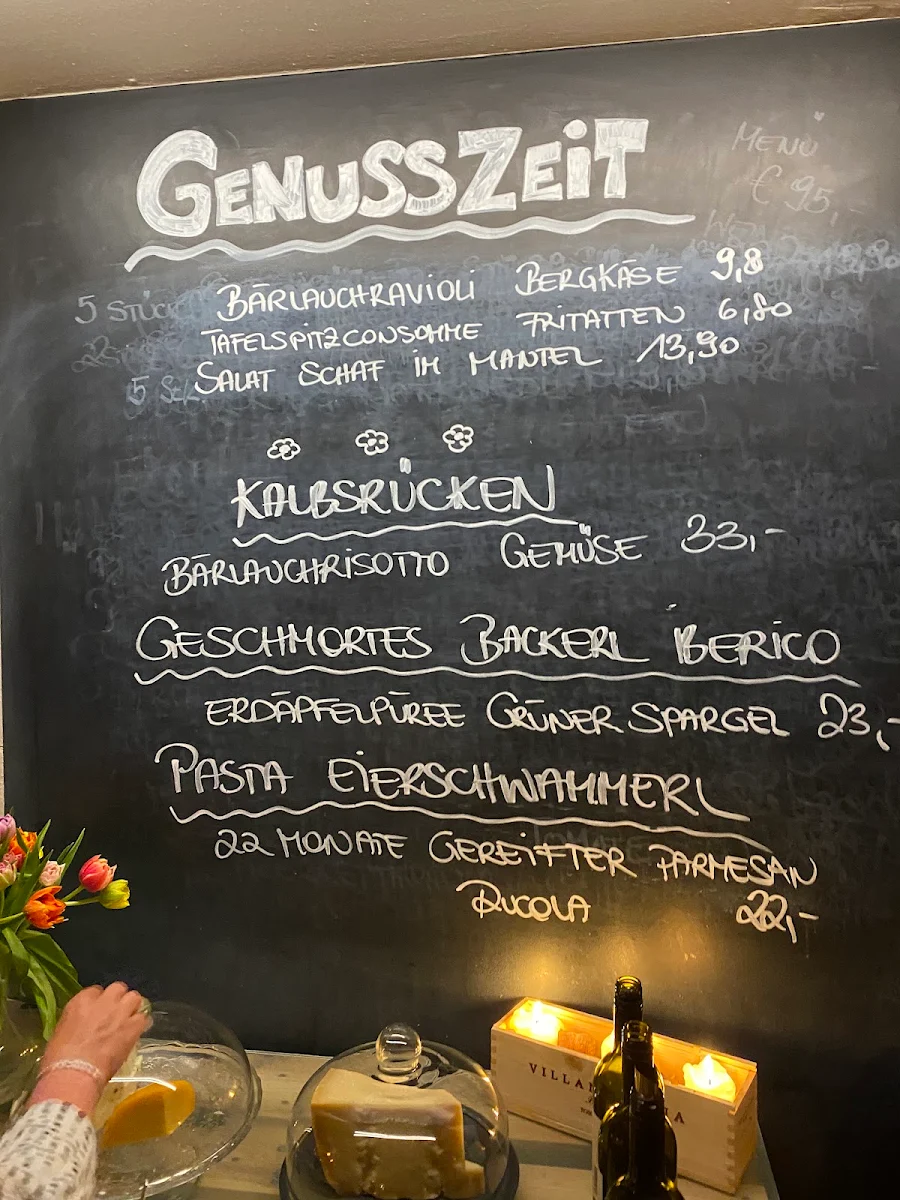 GENUSSZEIT
MENÜ
€ 95,-
5 STÜCK
BÄRLAUCHRAVIOLI BERGKÄSE 9,8
TAFELSPITZCONSOMME FRITATTEN 6,80
SALAT SCHAF IM MANTEL 13,90
KALBSRÜCKEN
BÄRLAUCHRISOTTO GEMÜSE 33,-
GESCHMORTES BACKERL IBERICO
ERDÄPFELPÜREE GRÜNER SPARGEL 23,-
PASTA EIERSCHWAMMERL
22 MONATE GEREIFTER PARMESAN
RUCOLA 22,-